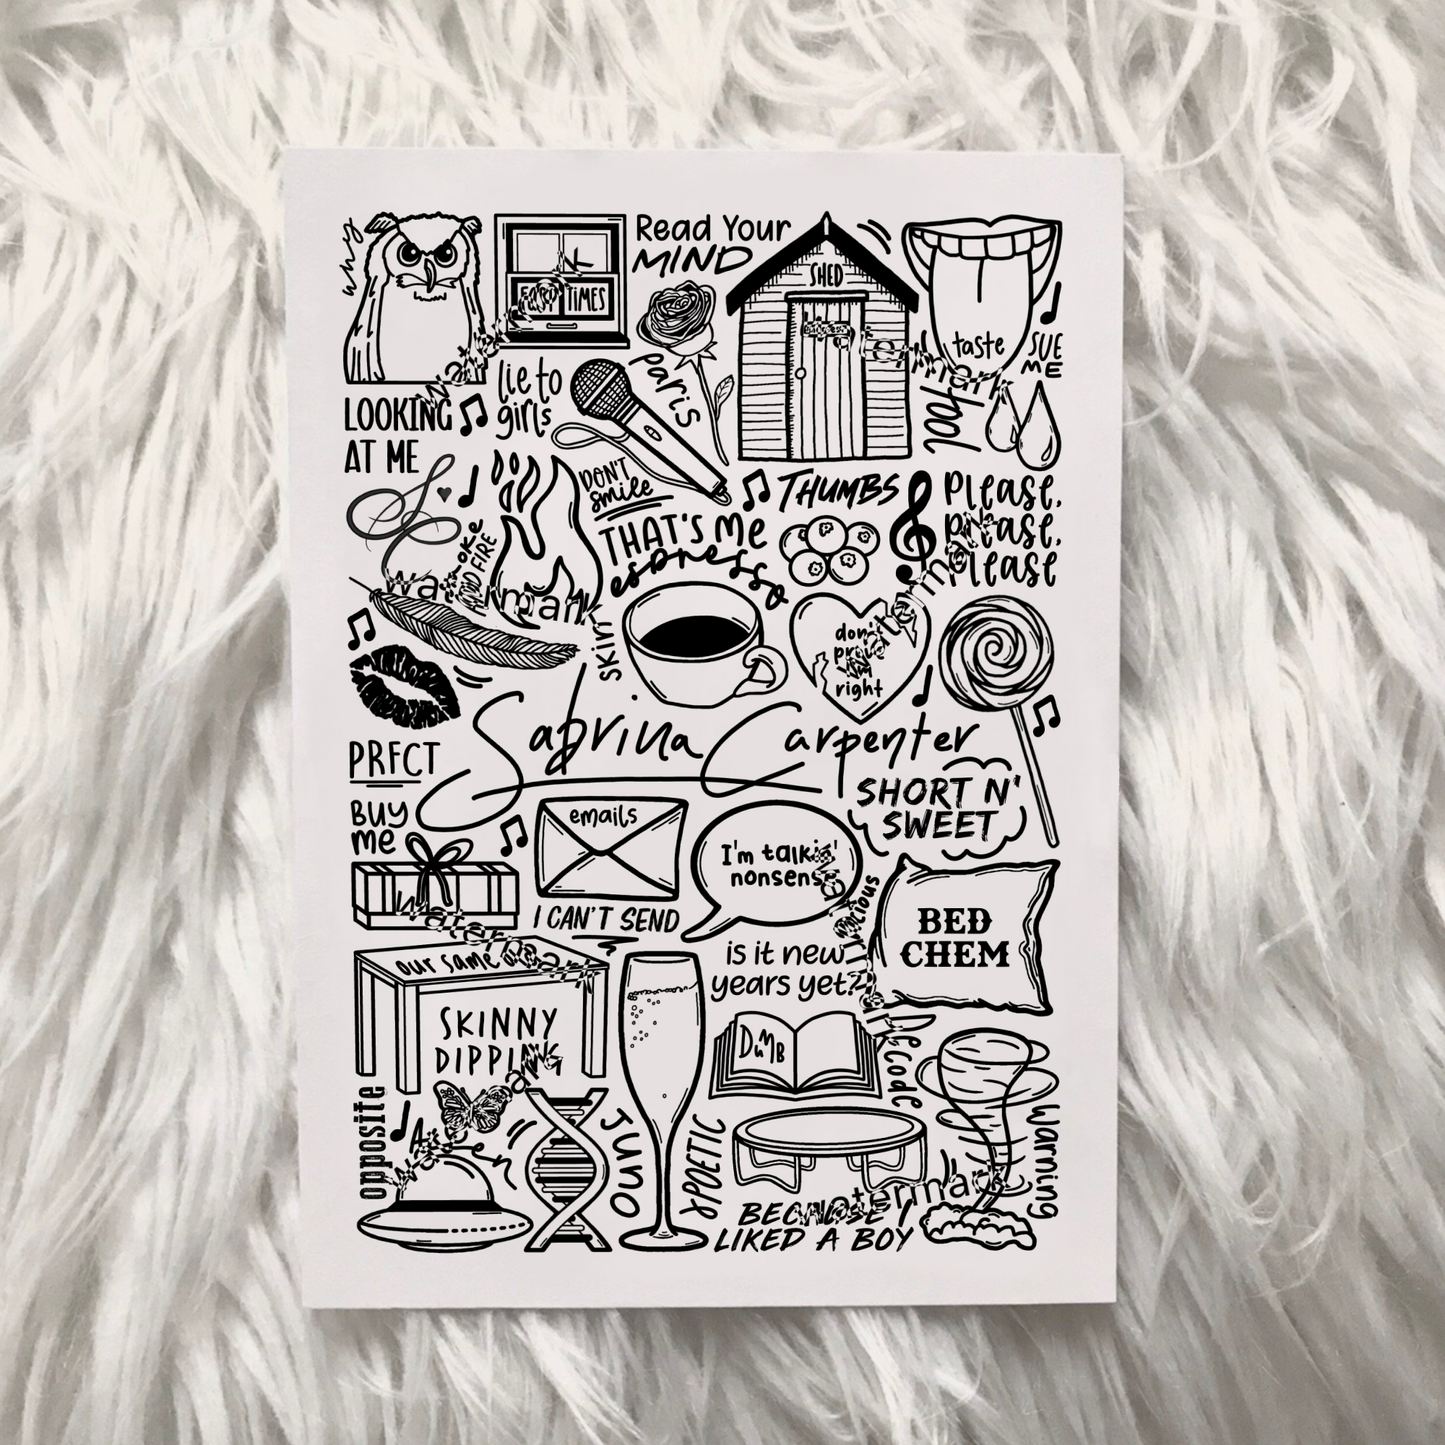 why
FAST TIMES
Read Your
MIND
SHED
taste
SUE
ME
LOOKING
AT ME
lie to
girls
Paris
fool
DON'T
smile
THUMBS
Please,
please,
please
THAT'S ME
espresso
Smoke
AND FIRE
watermark
skin
don't
right
Sabrina Carpenter
PRFCT
BUY
me
SHORT N'
SWEET
emails
I CAN'T SEND
I'm talkin'
nonsense
BED
CHEM
is it new
years yet?
our same
SKINNY
DIPPING
DUMB
Decode
opposite
Alien
JUNO
XPOETIC
Warning
watermark
BECAUSE I
LIKED A BOY